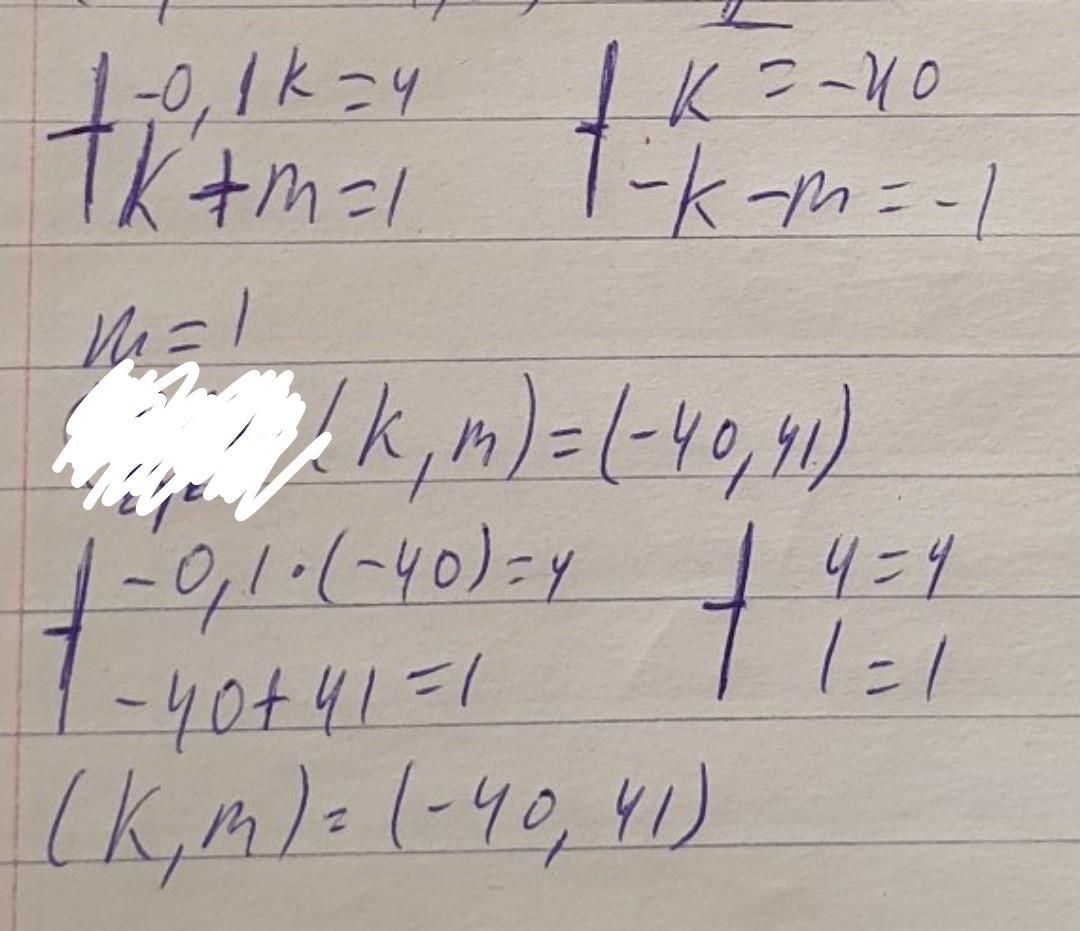 -0,1k=4 k=-40
k+m=1 -k-m=-1
m=1
(k,m)=(-40,41)
-0,1·(-40)=4 4=4
-40+41=1 1=1
(k,m)=(-40,41)